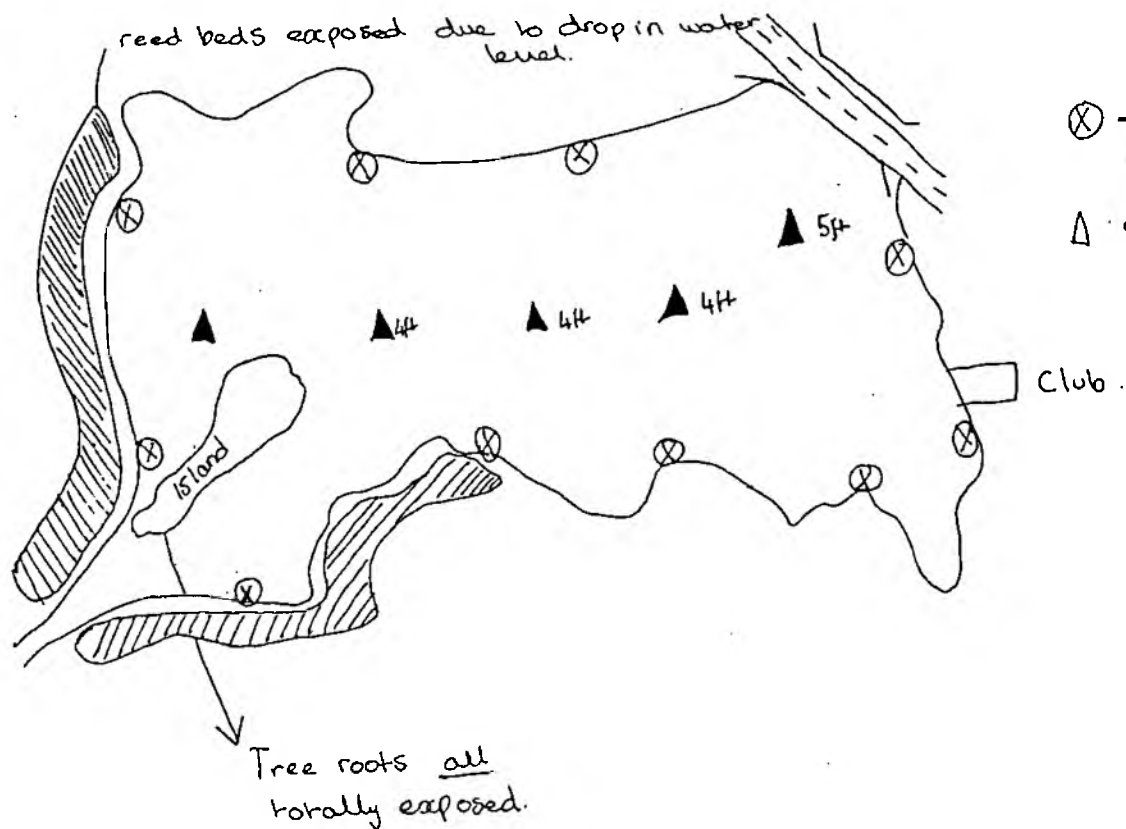 reed beds exposed due to drop in water
level.
5ft
4ft
4ft
4ft
Club.
Island
Tree roots all
totally exposed.